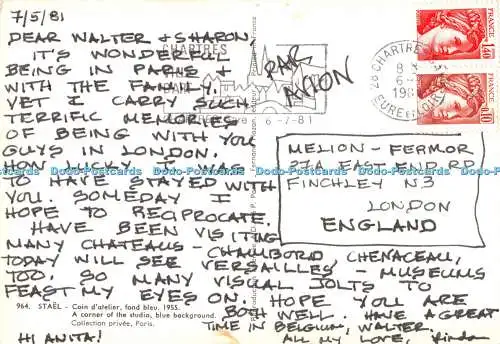 7/5/81
DEAR WALTER & SHARON,
IT'S WONDERFUL
BEING IN PARIS &
WITH THE FAMILY.
YET I CARRY SUCH
TERRIFIC MEMORIES
OF BEING WITH YOU
GUYS IN LONDON.
HOW LUCKY I WAS
TO HAVE STAYED WITH
YOU. SOMEDAY I
HOPE TO RECIPROCATE.
HAVE BEEN VISITING
MANY CHATEAUS - CHAMBORD, CHENACEAU,
TODAY WILL SEE VERSAILLES - MUSEUMS
TOO. SO MANY VISUAL JOLTS TO
FEAST MY EYES ON. HOPE YOU ARE
BOTH WELL. HAVE A GREAT
TIME IN BELGIUM, WALTER.
ALL MY LOVE, Linda
HI ANITA!
964. STAËL - Coin d'atelier, fond bleu. 1955.
A corner of the studio, blue background.
Collection privée, Paris.
CHARTRES
6-7-81
PAR
AVION
28 CHARTRES
EURE
FRANCE
1,40
FRANCE
MELION - FERMOR
87A EAST END RD
FINCHLEY N3
LONDON
ENGLAND
HPostcards